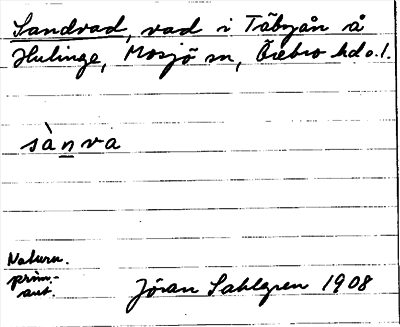 Sandvad, vad i Täbyån å
Hulinge, Mosjö sn, Örebro hd o. l.
sànva
Naturn.
prim.
aut.
Jöran Sahlgren 1908